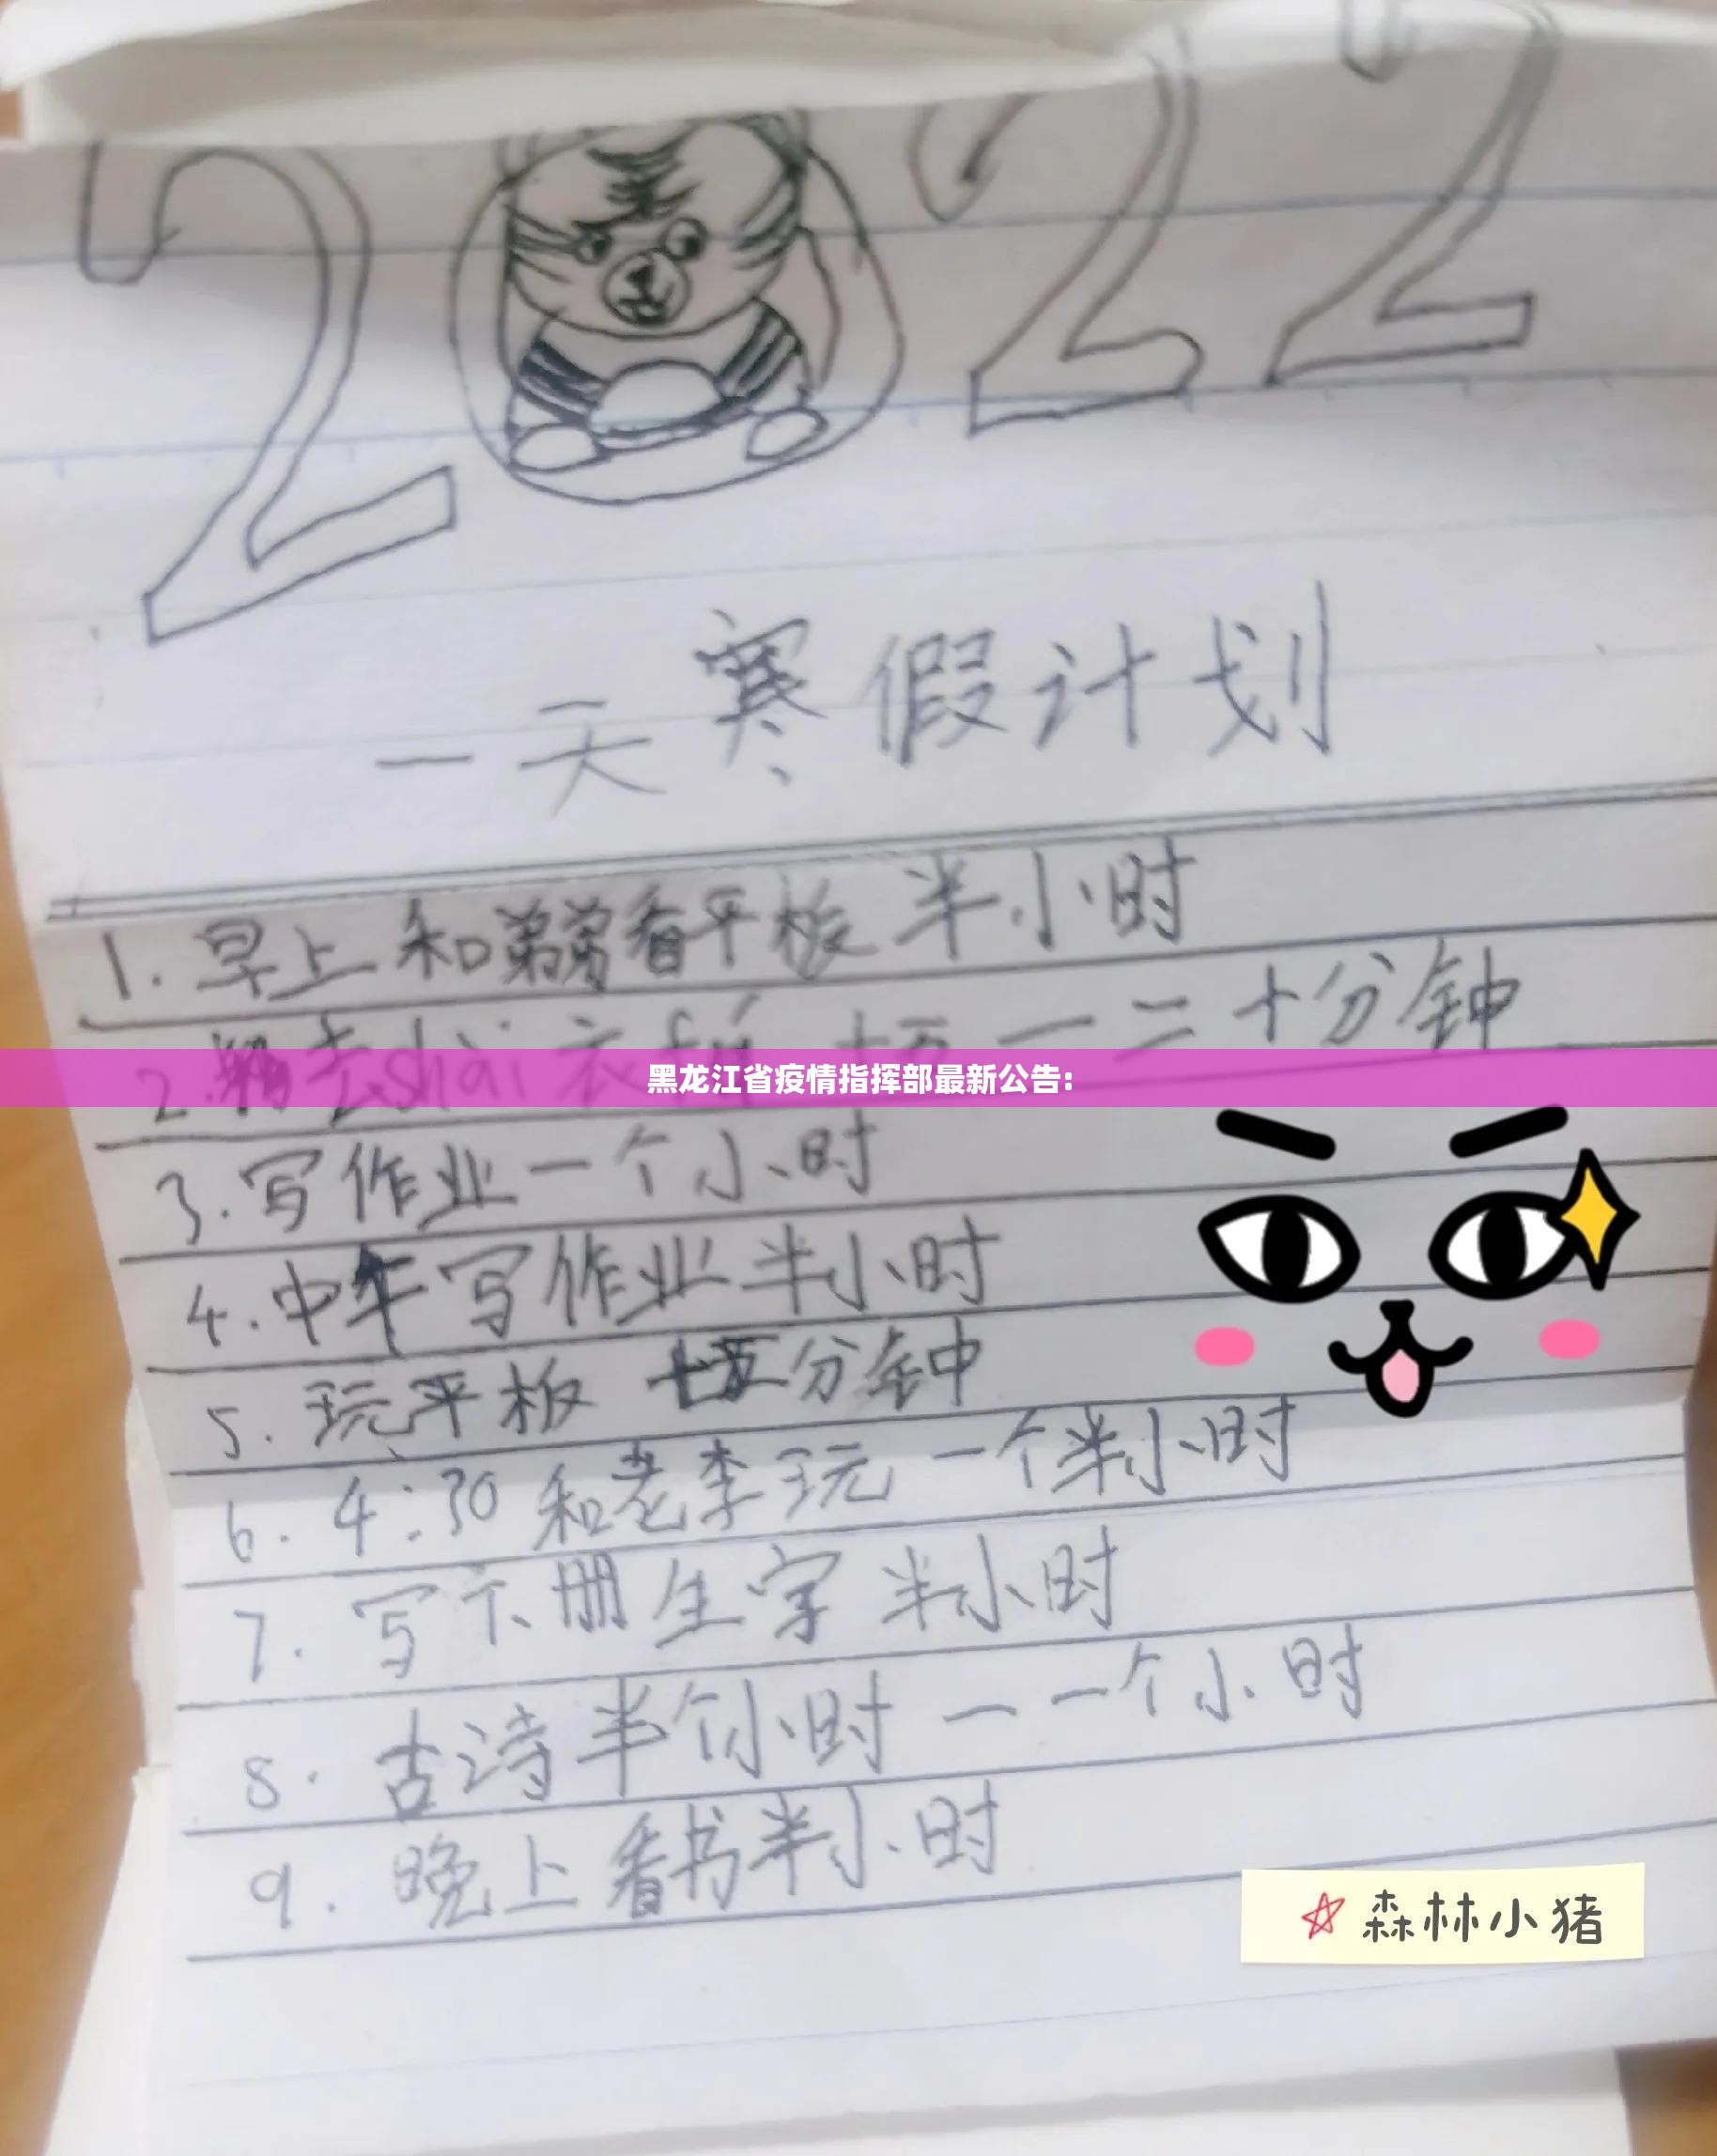 2022
一天寒假计划
1. 早上和弟弟看平板半小时
2. 去shai衣 十五一二十分钟
黑龙江省疫情指挥部最新公告:
3. 写作业一个小时
4. 中午写作业半小时
5. 玩平板 十五分钟
6. 4:30 和老李玩一个半小时
7. 写下册生字 半小时
8. 古诗半个小时一一个小时
9. 晚上看书半小时
森林小猪